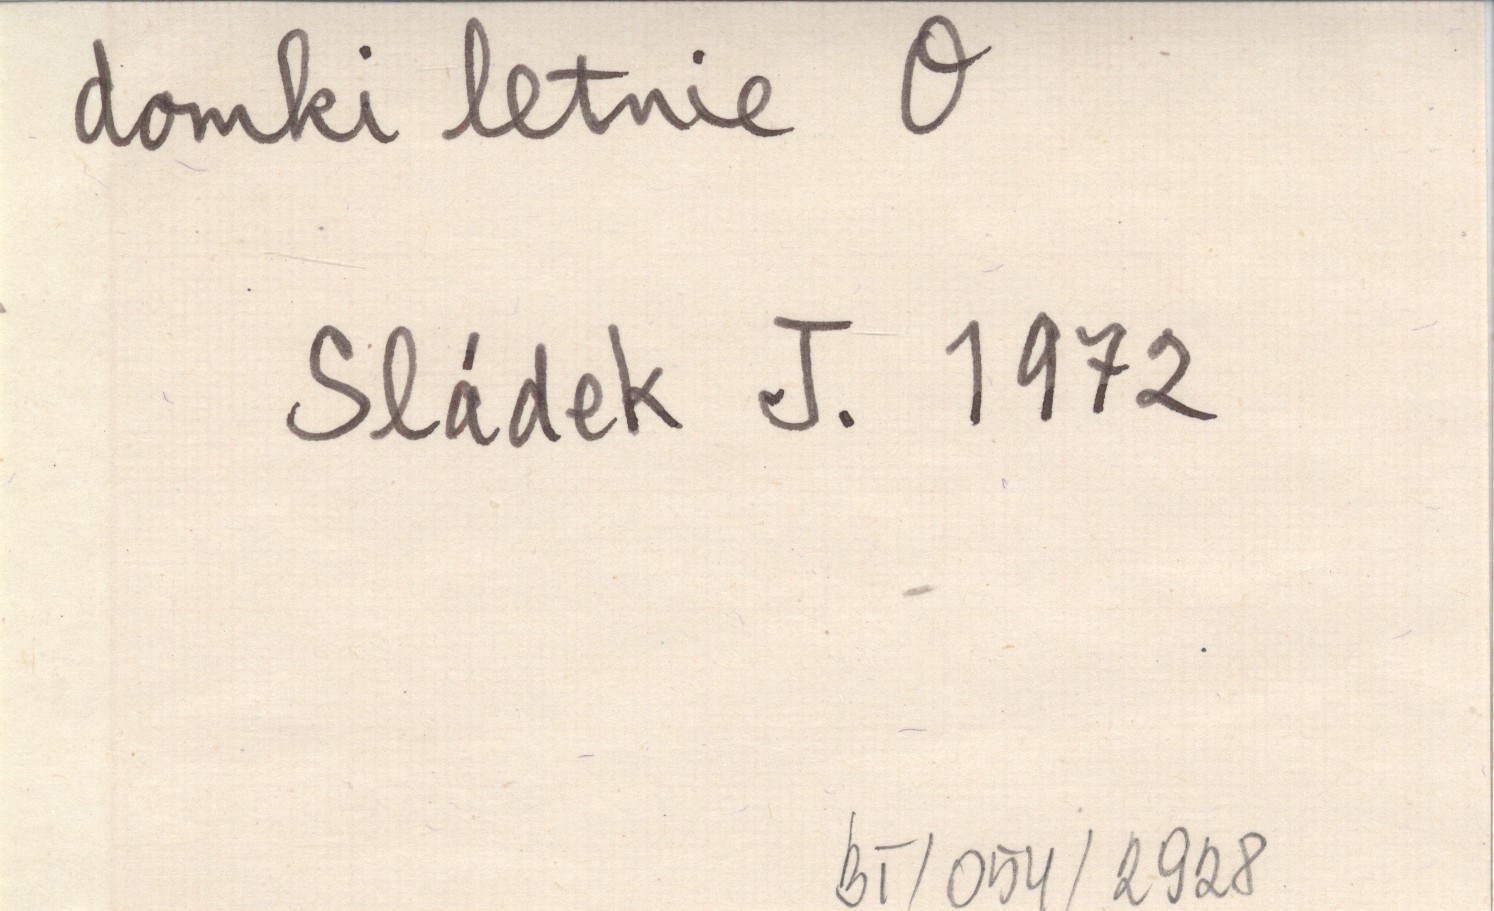 domki letnie O
Sládek J. 1972
BT/054/2928